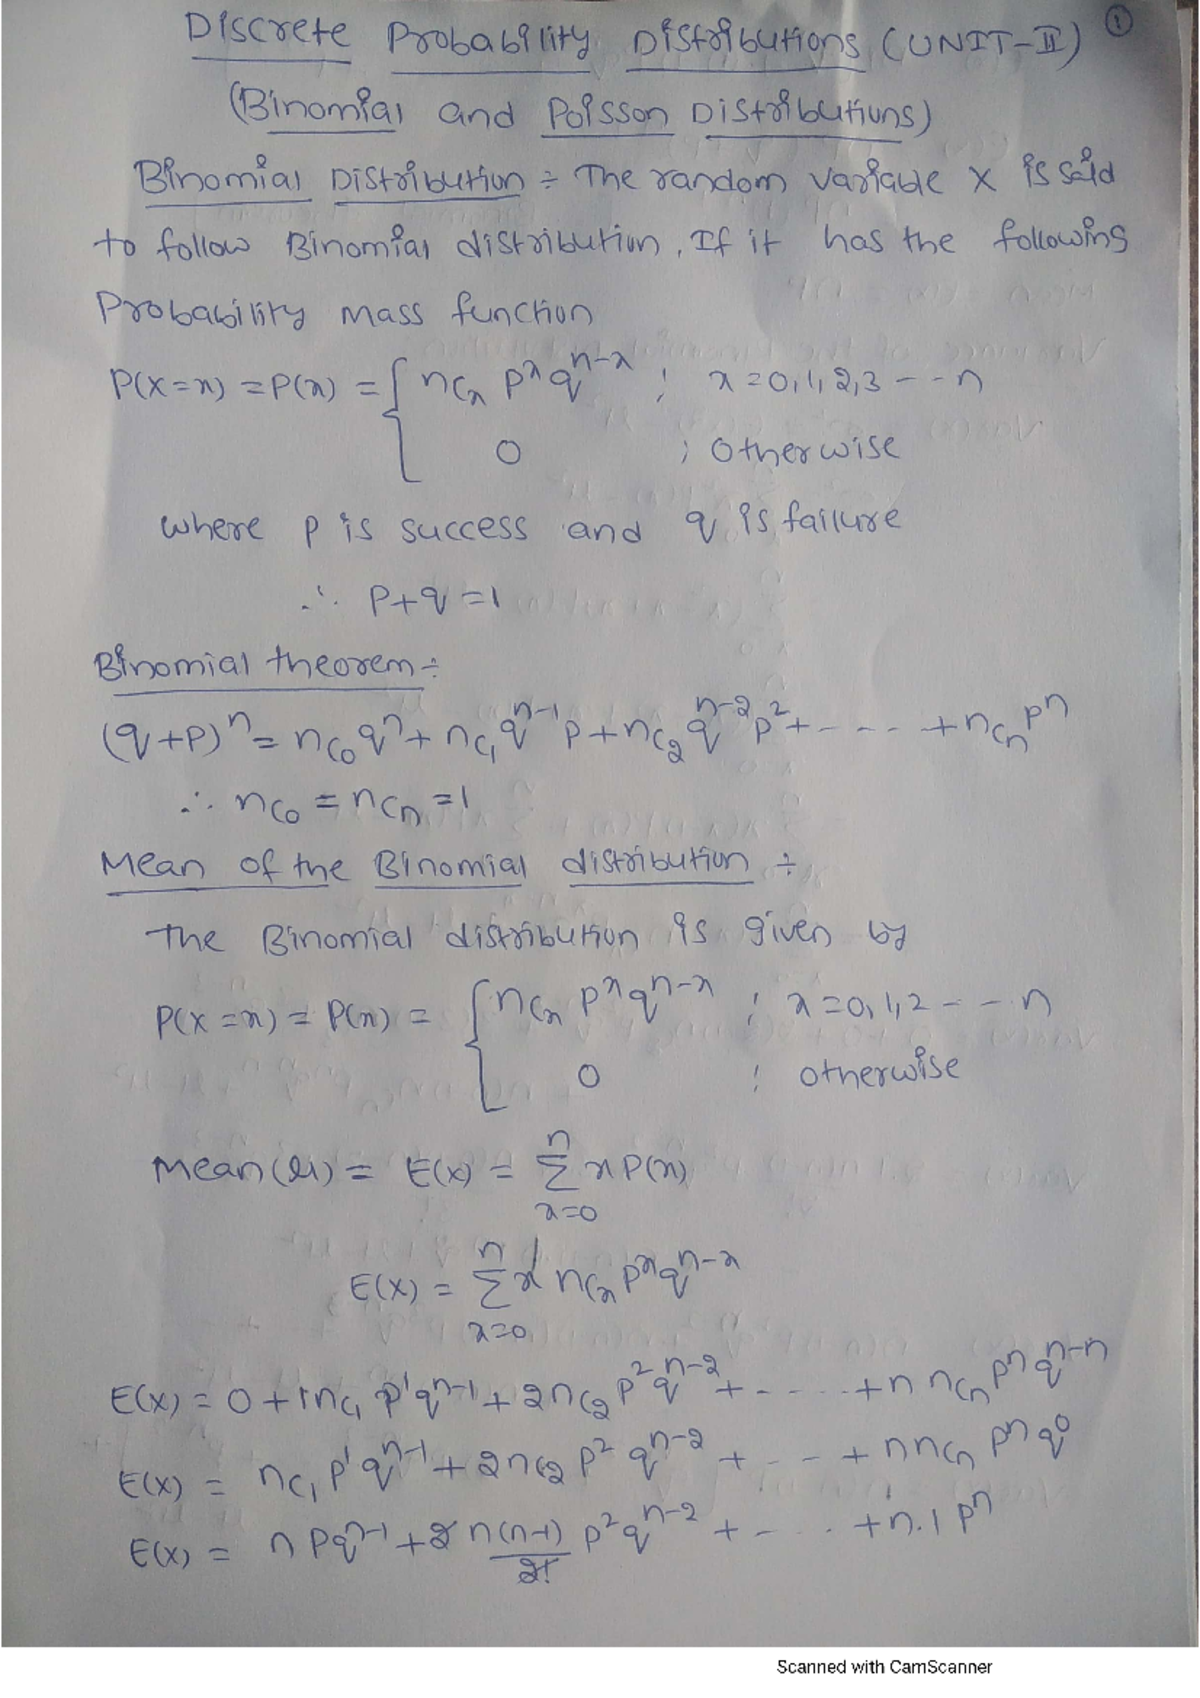 Discrete Probability Distributions (UNIT-II) ①
(Binomial and Poisson Distributions)
Binomial Distribution ÷ The random variable X is said
to follow Binomial distribution, If it has the following
Probability mass function
P(X=x) = P(x) = { nCx p^x q^(n-x) ; x=0,1,2,3 --- n
0 ; otherwise
where p is success and q is failure
∴ p+q=1
Binomial theorem ÷
(q+p)^n = nC0 q^n + nC1 q^(n-1) p + nC2 q^(n-2) p^2 + - - - - + nCn p^n
∴ nC0 = nCn = 1
Mean of the Binomial distribution ÷
The Binomial distribution is given by
P(X=x) = P(x) = { nCx p^x q^(n-x) ; x=0,1,2 --- n
0 ; otherwise
Mean(μ) = E(x) = Σ_{x=0}^{n} x P(x)
E(x) = Σ_{x=0}^{n} x nCx p^x q^(n-x)
E(x) = 0 + 1 nC1 p^1 q^(n-1) + 2 nC2 p^2 q^(n-2) + - - - - + n nCn p^n q^(n-n)
E(x) = nC1 p^1 q^(n-1) + 2 nC2 p^2 q^(n-2) + - - - + n nCn p^n q^0
E(x) = n p q^(n-1) + 2 n(n-1)/2! p^2 q^(n-2) + - - - - + n.1 p^n
Scanned with CamScanner